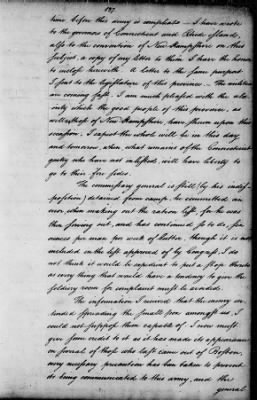 137
time before this army is compleat — I have wrote
to the governors of Connecticut and Rhode Island,
also to the convention of New Hampshire on this
subject, a copy of my letter to them I have the honor
to inclose herewith. A letter to the same purport
I sent to the legislature of this province. The militia
are coming fast. I am much pleased with the ala-
crity which the good people of this province, as
well as those of New Hampshire, have shewn upon this
occasion. I expect the whole will be in this day
and tomorrow, when what remains of the Connecticut
gentry who have not inlisted, will have liberty to
go to their fire sides.
The commissary general is still (by his indis-
position) detained from camp. he committed an
error, when making out the ration list, for he was
then serving out, and has continued so to do, six
ounces pr man pr week of butter, though it is not
included in the list approved of by Congress. I do
not think it would be expedient to put a stop thereto
as every thing that would have a tendency to give the
soldiery room for complaint must be avoided.
The information I received that the enemy in-
tended spreading the small pox amongst us, I
could not suppose them capable of. I now must
give some credit to it as it has made its appearance
on several of those who last came out of Boston,
every necessary precaution has been taken to prevent
its being communicated to this army, and the
general